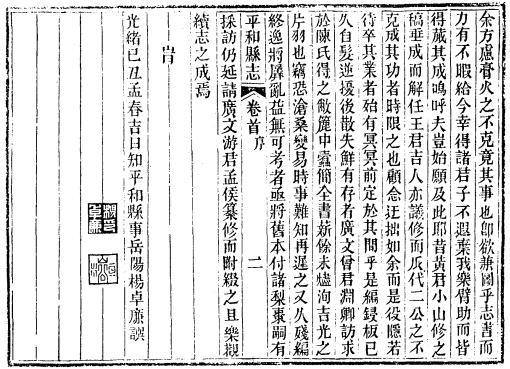 余方慮膏火之不克竟其事也卽欲兼圖乎志書而
力有不暇給今幸得諸君子不遐棄我樂臂助而皆
得蕆其成嗚呼夫豈始願及此耶昔黃君小山修之
稿垂成而解任王君吉人亦議修而瓜代二公之不
克成其功者時限之也顧念迂拙如余而是役隱若
待卒其業者殆有冥冥前定於其間乎是編鋟板已
久自髮逆擾後散失鮮有存者廣文曾君淵卿訪求
於陳氏得之敝簏中蠹簡全書薪餘未燼洵吉光之
片羽也竊恐滄桑變易時事難知再遲之又久殘編
終逸將孱亂益無可考者亟將舊本付諸梨棗嗣有
平和縣志 卷首 序 二
採訪仍延請廣文游君孟侯纂修而附綴之且樂觀
續志之成焉
旹
光緒己丑孟春吉日知平和縣事岳陽楊卓廉譔